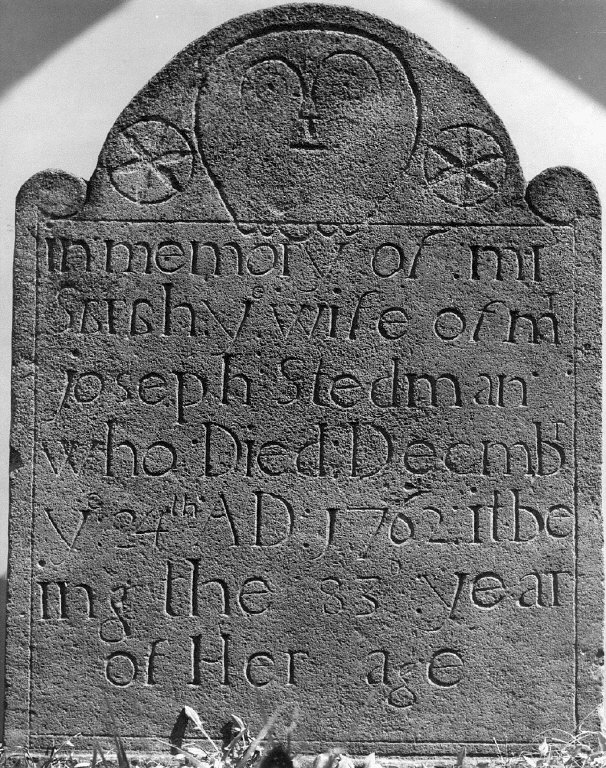 in memory of mr
Sarah: yᵉ: wife of mʳ
joseph Stedman
who: Died: Decmbʳ
yᵉ: 24ᵗʰ AD: 1762: it be
ing the 83: year
of Her age